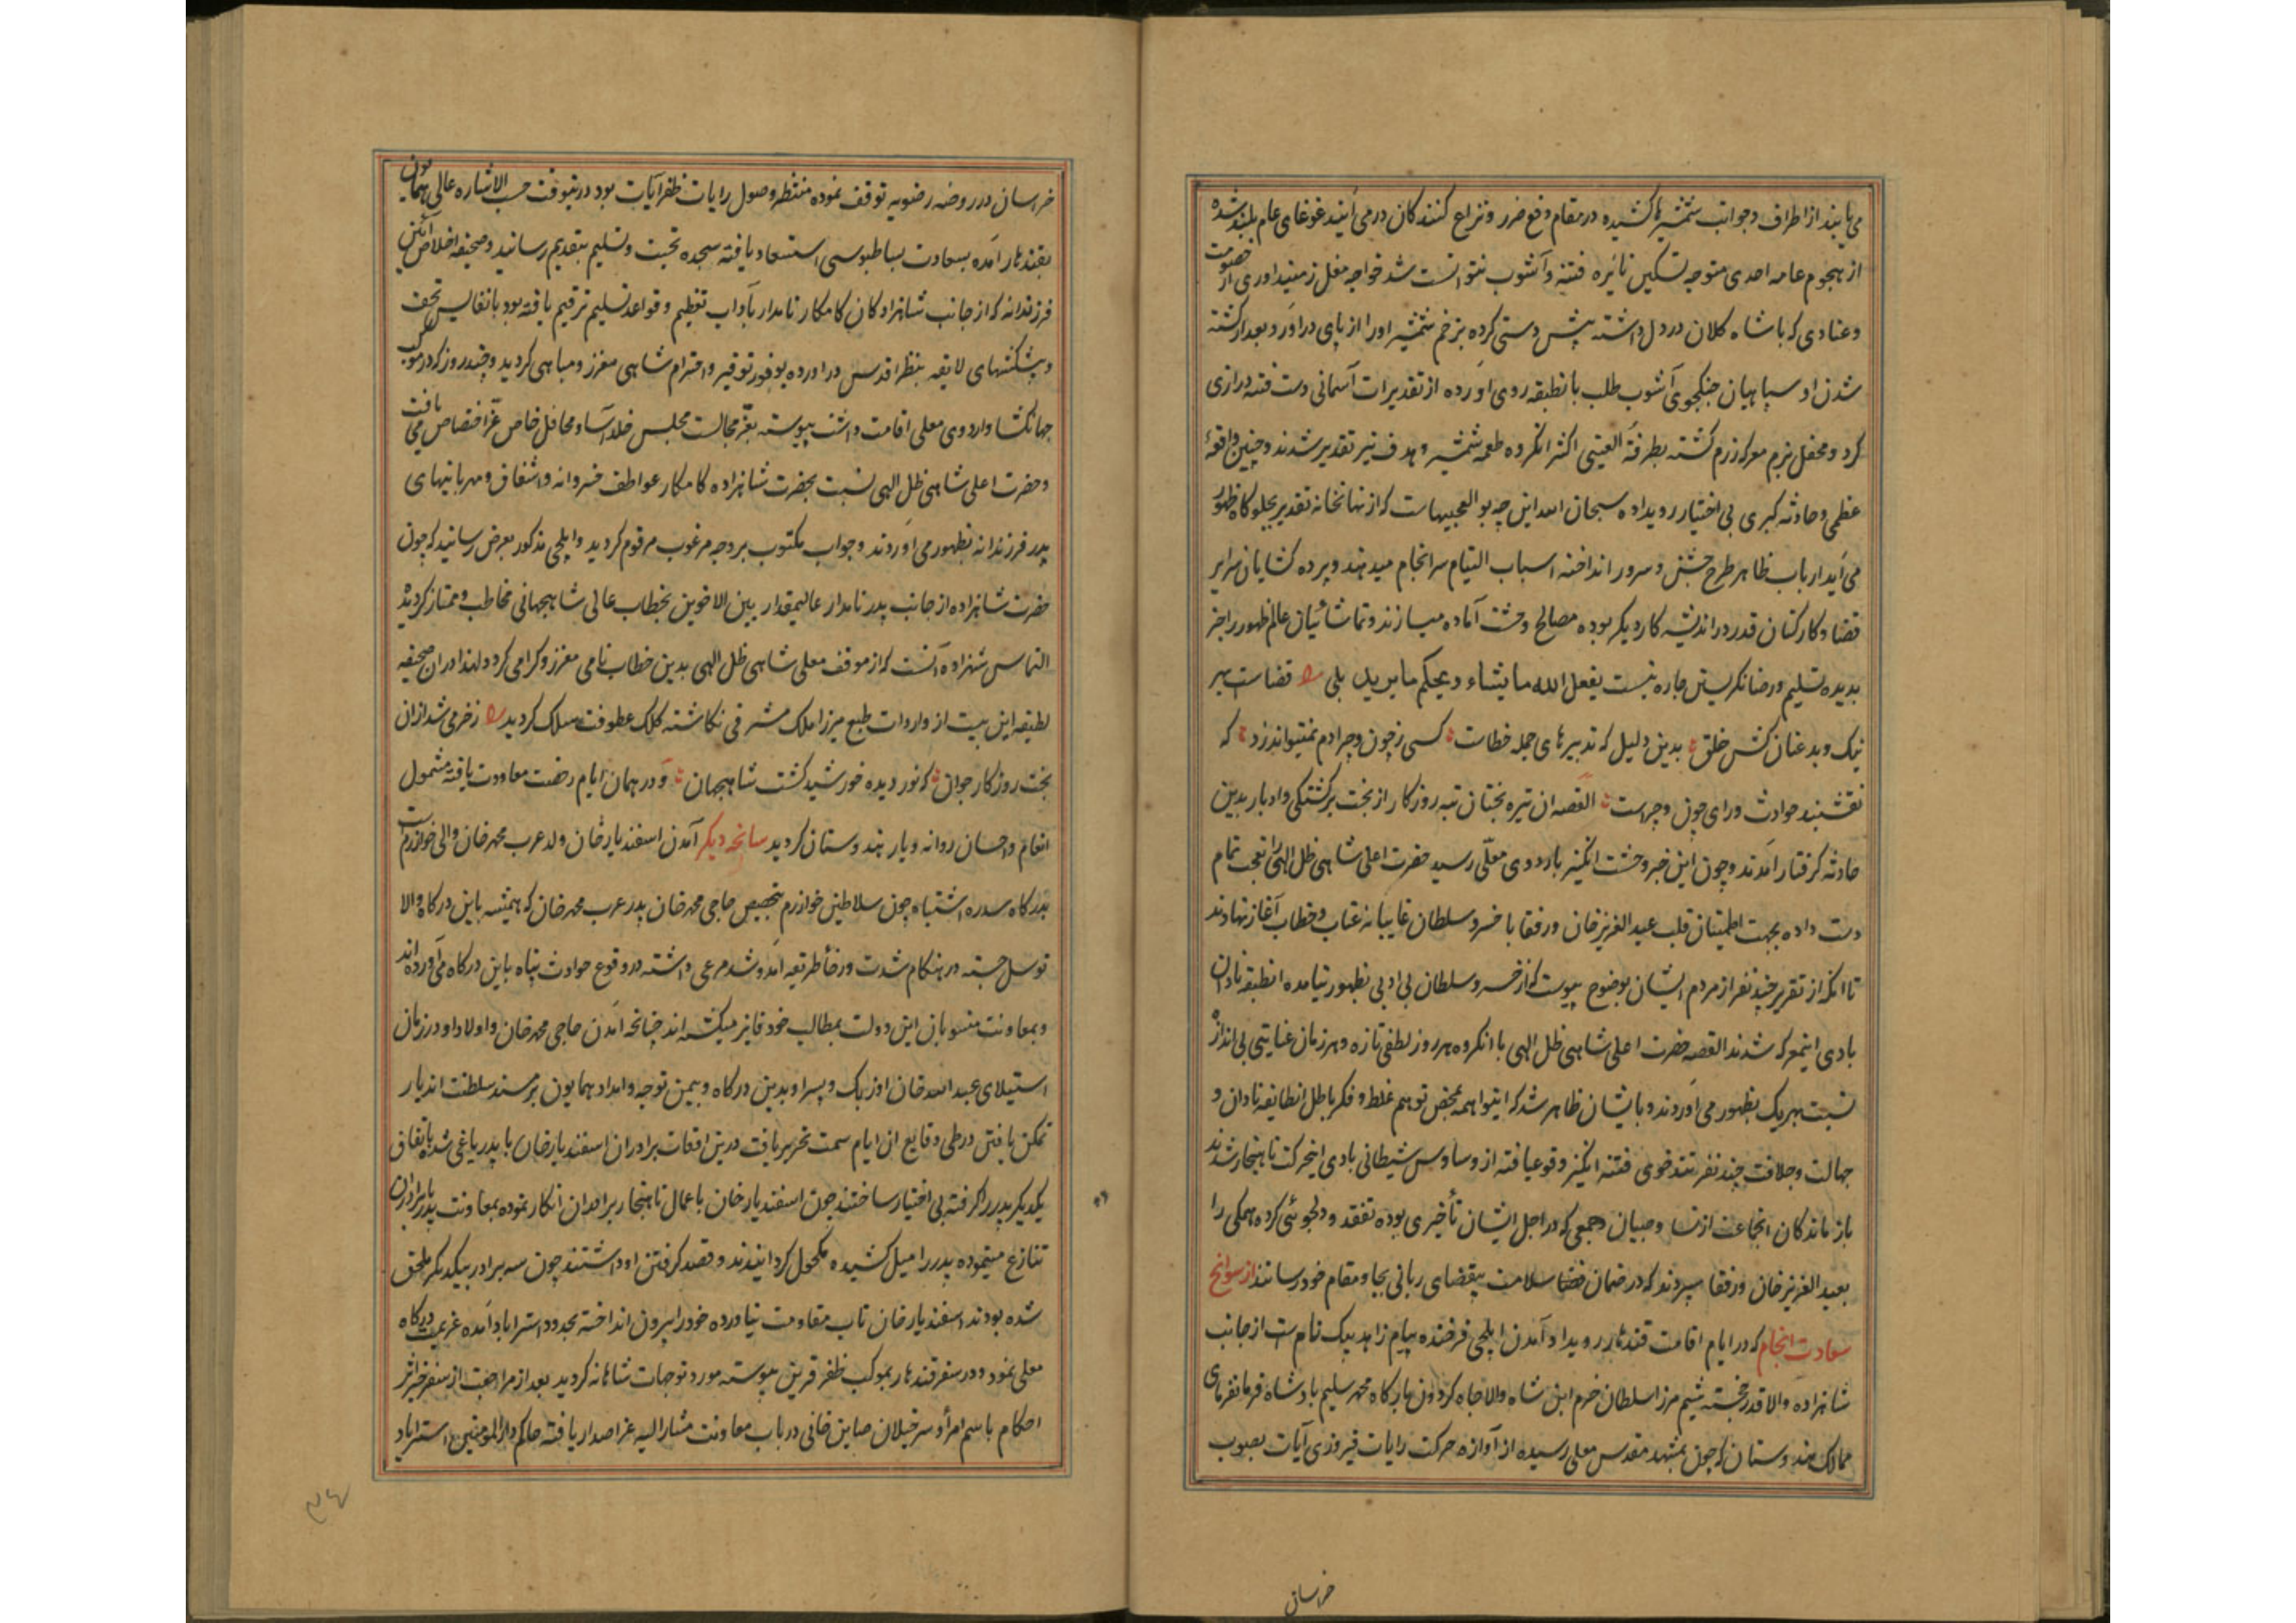 می‌یابند از اطراف و جوانب شمشیرها کشیده در مقام دفع ضرر و نزاع کنندکان در می‌آیند غوغای عام بلند شده
از هجوم عامه احدی متوجه تسکین نایره فتنه و آشوب نتوانست شد خواجه مغل زمینداوری از خصومت
وعنادی که با شاه کلان در دل داشته پیش دستی کرده بزخم شمشیر او را از پای در آورد و بعد از کشته
شدن او سپاهیان جنکجوی آشوب طلب بانطبقه روی آورده از تقدیرات آسمانی دست فتنه درازی
کرد و محفل بزم معرکه رزم کشته بطرفة العینی اکثر انکروه طعمه شمشیر و هدف تیر تقدیر شدند و چنین واقعهٔ
عظمی و حادثه کبری بی اختیار رویداده سبحان الله این چه بوالعجبیهاست که از نهانخانه تقدیر بجلوه کاه ظهور
می‌آید ارباب ظاهر طرح جشن و سرور انداخته اسباب التیام سرانجام میدهند و پرده کشایان سرایر
قضا و کارکنان قدر در اندیشه کار دیکر بوده مصالح وحشت آماده میسازند و تماشائیان عالم ظهور را جز
بدیده تسلیم و رضا نکریستن چاره نیست یفعل الله ما یشاء و یحکم ما یرید بلی قضاست بهر
نیک و بد عنان کش خلق بدین دلیل که تدبیرهای جمله خطاست کسی ز چون و چرا دم نمیتواند زد که
نقشبند حوادث ورای چون و چراست القصه ان تیره بختان تبه روزکار از بخت برکشتکی و ادبار بدین
حادثه کرفتار آمدند و چون این خبر وحشت انکیز باردوی معلّی رسید حضرت اعلی شاهی ظل الهی را تعجب تمام
دست داده بجهت اطمینان قلب عبد العزیز خان و رفقا با خسرو سلطان غایبانه عتاب و خطاب آغاز نهادند
تا انکه از تقریر چند نفر از مردم ایشان بوضوح پیوست که از خسرو سلطان بی ادبی بظهور نیامده انطبقه نادان
بادی اینمعرکه شدند القصه حضرت اعلی شاهی ظل الهی با انکروه هر روز لطفی تازه و هر زمان عنایتی بی اندازه
نسبت بهر یک بظهور می‌آوردند و بایشان ظاهر شد که اینواهمه محض توهم غلط و فکر باطل انطایفه نادان و
جهالت و جلافت چند نفر تندخوی فتنه انکیز وقوعیافته از وساوس شیطانی بادی اینحرکت ناهنجار شدند
بازماندکان انجماعت از نسا و صبیان و جمعی که در اجل ایشان تأخیری بوده تفقد و دلجوئی کرده همکی را
بعبد العزیز خان و رفقا سپردند که در ضمان سلامت بقضای ربانی بجا و مقام خود رسانند از سوانح
سعادت انجام که در ایام اقامت قندهار رویداد آمدن ایلچی فرخنده پیام زاهد بیک نام ست از جانب
شاهزاده والا قدر خجسته شیم مرزا سلطان خرم ابن شاه والاجاه کردون بارکاه محمد سلیم پادشاه فرمانفرمای
ممالک هندوستان که چون بمشهد مقدس معلی رسیده از آوازه حرکت رایات فیروزی آیات بصوب
خراسان
خراسان در روضه رضویه توقف نموده منتظر وصول رایات ظفر آیات بود درینوقت حسب الاشاره عالی همایون
بقندهار آمده بسعادت بساطبوسی استسعاد یافته سجده تحیت و تسلیم بتقدیم رسانید و صحیفه اخلاص آئین
فرزندانه که از جانب شاهزادکان کامکار نامدار بآداب تعظیم و قواعد تسلیم ترقیم یافته بود با نفایس تحف
و پیشکشهای لایقه بنظر اقدس در اورده بوفور توقیر و احترام شاهی معزز و مباهی کردید و چند روز که در موکب
جهانکشا و اردوی معلی اقامت داشت پیوسته بعزّ مجالست مجلس خلد آسا و محافل خاص عزّ اختصاص می یافت
و حضرت اعلی شاهی ظل الهی نسبت بحضرت شاهزاده کامکار عواطف خسروانه و اشفاق و مهربانیهای
پدر فرزندانه بظهور می‌آوردند و جواب مکتوب بر وجه مرغوب مرقوم کردید و ایلچی مذکور بعرض رسانید که چون
حضرت شاهزاده از جانب پدر نامدار عالیمقدار بین الاخوین بخطاب عالی شاهجهانی مخاطب و ممتاز کردیده
التماس شهزاده آنست که از موقف معلی شاهی ظل الهی بدین خطاب نامی معزز و کرامی کردد لهذا در ان صحیفه
لطیفه این بیت از واردات طبع میرزا ملک مشرقی نکاشته کلک عطوفت سلک کردید ز خرمی شد ازان
بخت روزکار جوان که نور دیده خورشید کشت شاهجهان و در همان ایام رخصت معاودت یافته مشمول
انعام و احسان روانه دیار هندوستان کردید سانحه دیکر آمدن اسفندیار خان ولد عرب محمد خان والی خوارزم است
بدرکاه سدره اشتباه چون سلاطین خوارزم بتخصیص حاجی محمد خان پدر عرب محمد خان که همیشه باین درکاه والا
توسل جسته در هنکام شدت و رخأ طریقه آمد و شد مرعی داشته در وقوع حوادث پناه باین درکاه می‌آورده‌اند
و بمعاونت منسوبان این دولت بمطالب خود فایز میکشته اند چنانچه آمدن حاجی محمد خان و اولاد او در زمان
استیلای عبد الله خان اوزبک و پسر او بدین درکاه و بیمن توجه و امداد همایون بر مسند سلطنت اندیار
تمکن یافتن در طی وقایع ان ایام سمت تحریر یافت درین اوقات برادران اسفندیار خان با پدر یاغی شده باتفاق
یکدیکر پدر را کرفته بی اختیار ساختند چون اسفندیار خان باعمال ناهنجار برادران انکار نموده بمعاونت پدر با برادران
تنازع مینموده پدر را میل کشیده مکحول کردانیدند و قصد کرفتن او داشتند چون سه برادر بیکدیکر ملحق
شده بودند اسفندیار خان تاب مقاومت نیاورده خود را بیرون انداخته بحدود استراباد آمده عزیمت درکاه
معلی نمود و در سفر قندهار بموکب ظفر قرین پیوسته مورد توجهات شاهانه کردید بعد از مراجعت از سفر خیر اثر
احکام باسم امرأ و سرخیلان صاین خانی در باب معاونت مشار الیه عزّ اصدار یافته حاکم دار المومنین استراباد